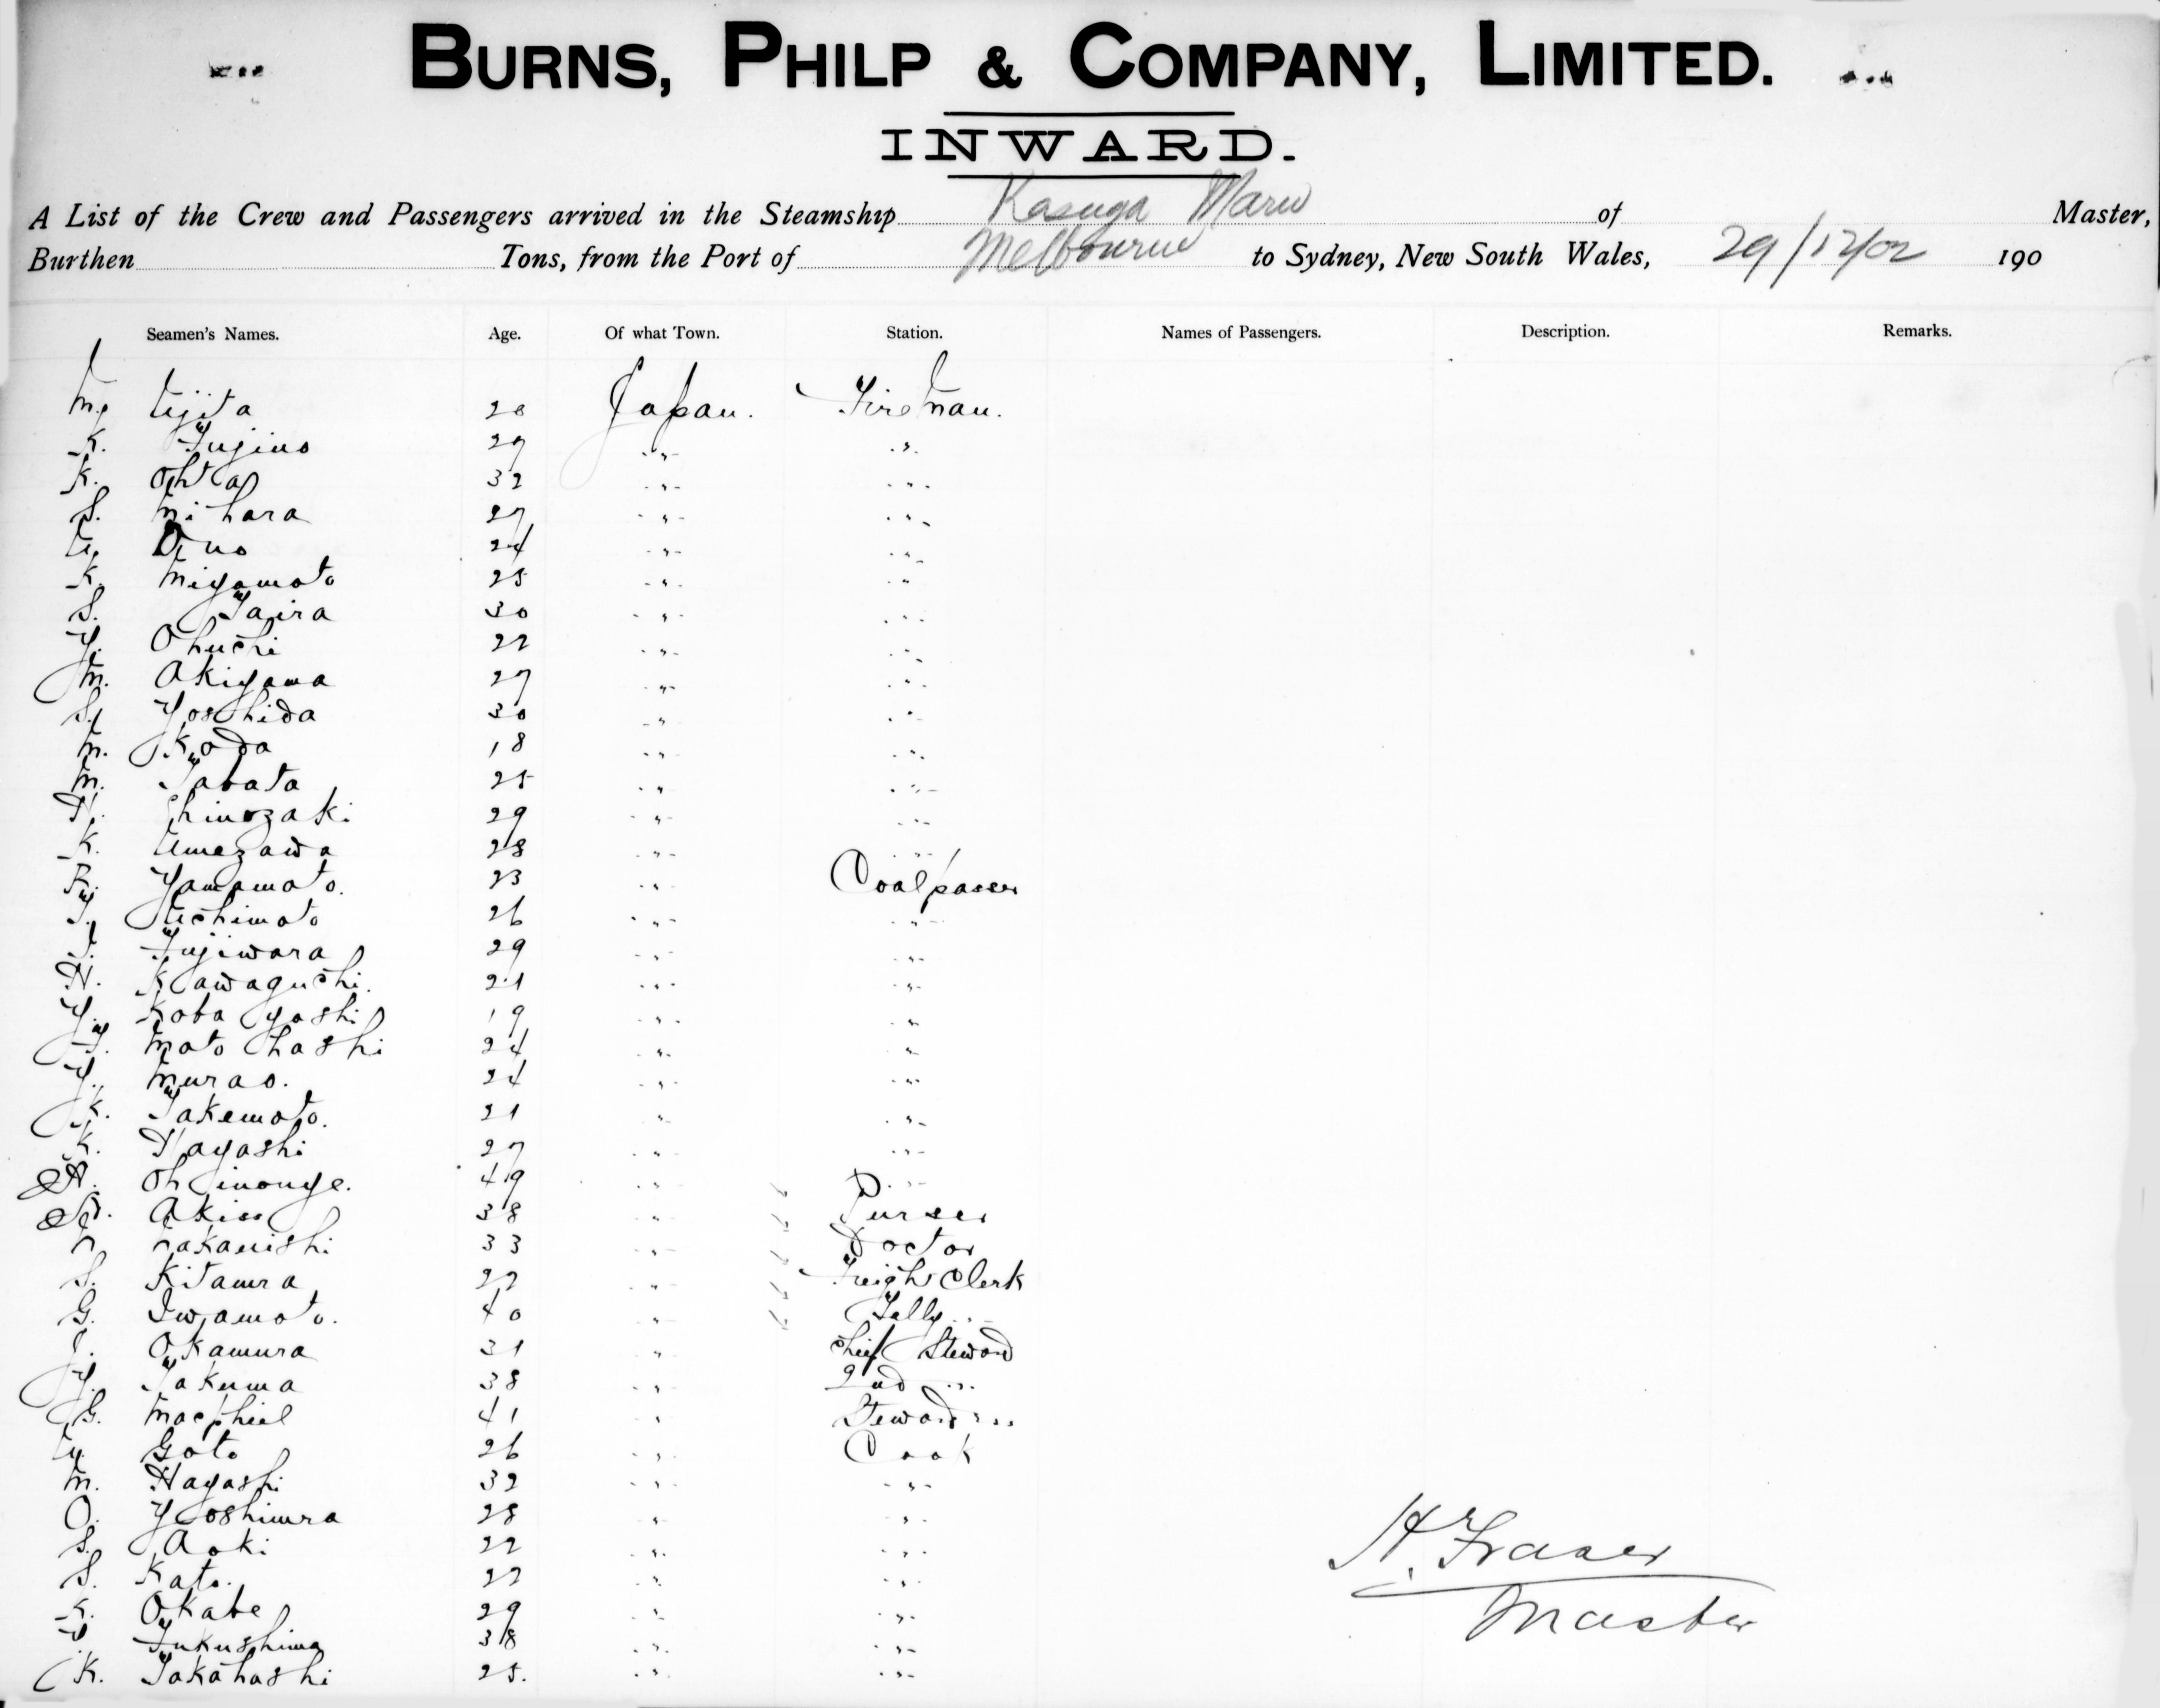 BURNS, PHILP & COMPANY, LIMITED.
INWARD.
A List of the Crew and Passengers arrived in the Steamship Kasuga Maru of Master,
Burthen Tons, from the Port of Melbourne to Sydney, New South Wales, 29/12/02 190
Seamen's Names. Age. Of what Town. Station. Names of Passengers. Description. Remarks.
M. Ujita 28 Japan. Fireman.
K. Fujino 29 " "
K. Ohta 32 " "
S. Mihara 27 " "
U. 24 " "
K. Miyamoto 25 " "
S. Taira 30 " "
Y. Ohuchi 22 " "
M. Akiyama 27 " "
S. Yoshida 30 " "
M. Koda 18 " "
M. Tabata 25 " "
H. Shinozaki 29 " "
K. Umezawa 28 " "
R. Yamamoto. 23 " Coalpasser
T. Uchimoto 26 " "
Fujiwara 29 " "
H. Kawaguchi. 21 " "
Y. Kobayashi 19 " "
T. Motohashi 24 " "
Y. Murao. 24 " "
K. Takemoto. 21 " "
K. Hayashi 27 " "
H. Ohinouye. 49 " "
38 " Purser
Nakanishi 33 " Doctor
S. Kitamra 22 " Freight Clerk
G. Iwamoto. 40 " Tally "
Okamura 31 " Chief Steward
Y. Takuma 38 " 2nd "
G. Macphiel 41 " Steward "
U. Goto 26 " Cook
M. Hayashi 32 " "
O. Yoshimra 28 " "
S. Aoki 22 " "
S. Kato. 22 " "
K. Okabe 29 " "
Fukushima 38 " "
K. Takahashi 25. " "
H. Fraser
Master